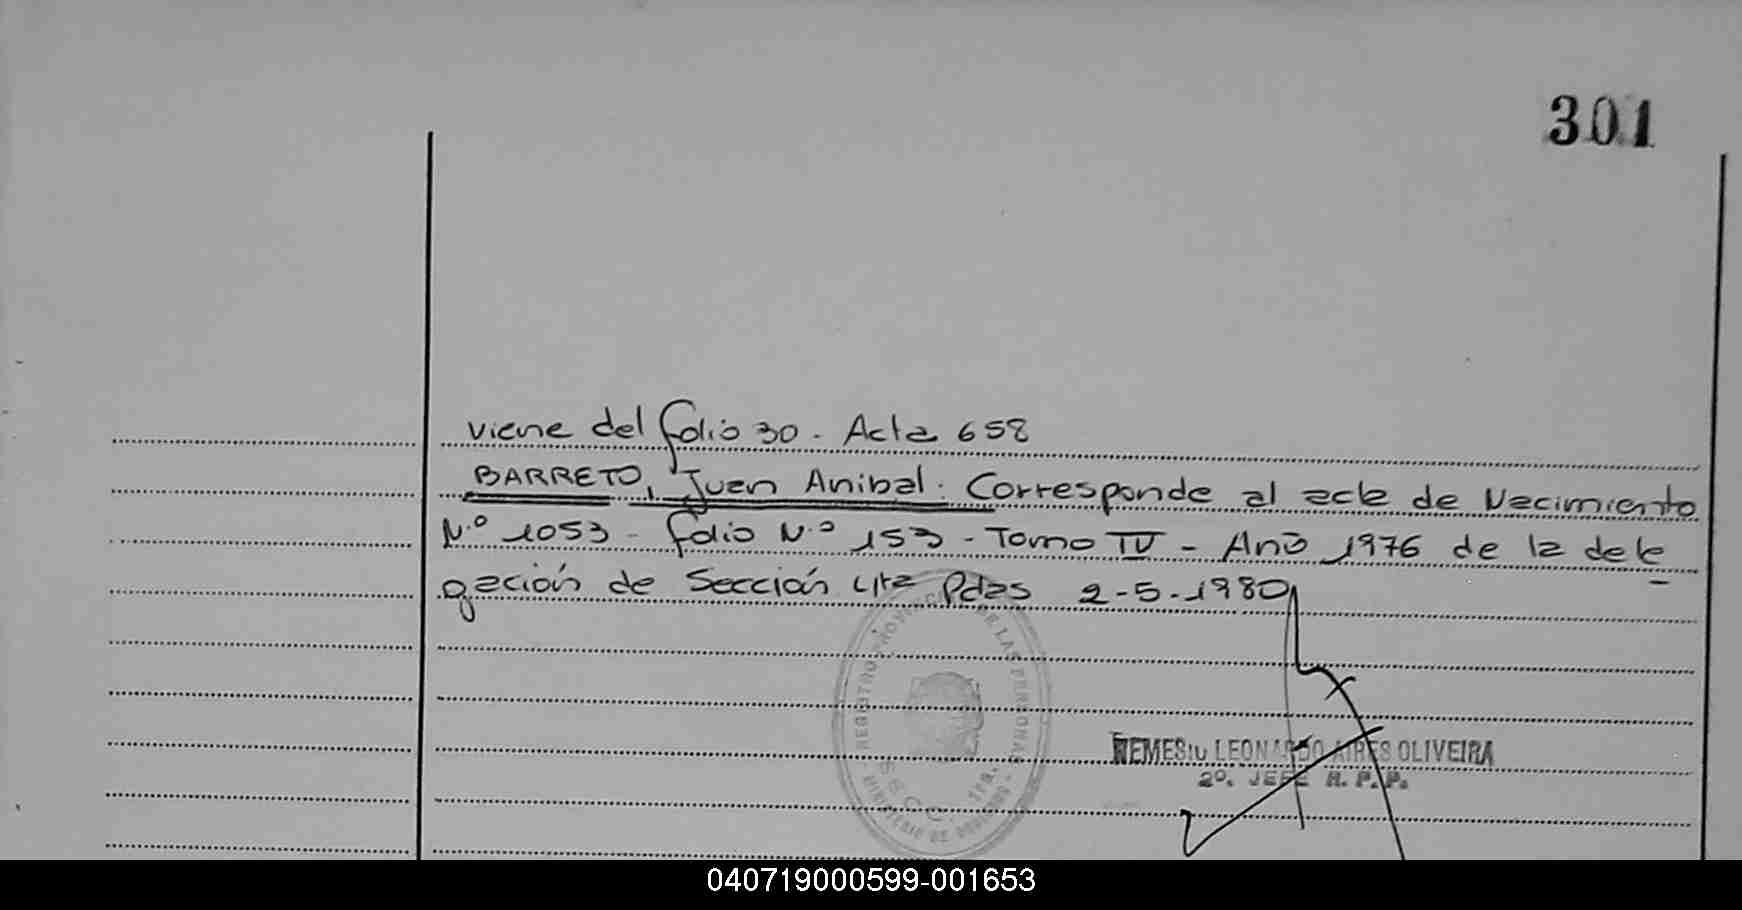 301
viene del folio 30. Acta 658
BARRETO, Juan Anibal. Corresponde al acta de Nacimiento
N.º 1053 - folio N.º 153 - Tomo IV - Año 1976 de la dele
gación de Sección Pdas 2-5-1980
REGISTRO PROVINCIAL DE LAS PERSONAS
MINISTERIO DE GOBIERNO
NEMESIO LEONARDO AIRES OLIVEIRA
2º. JEFE R. P. P.
040719000599-001653